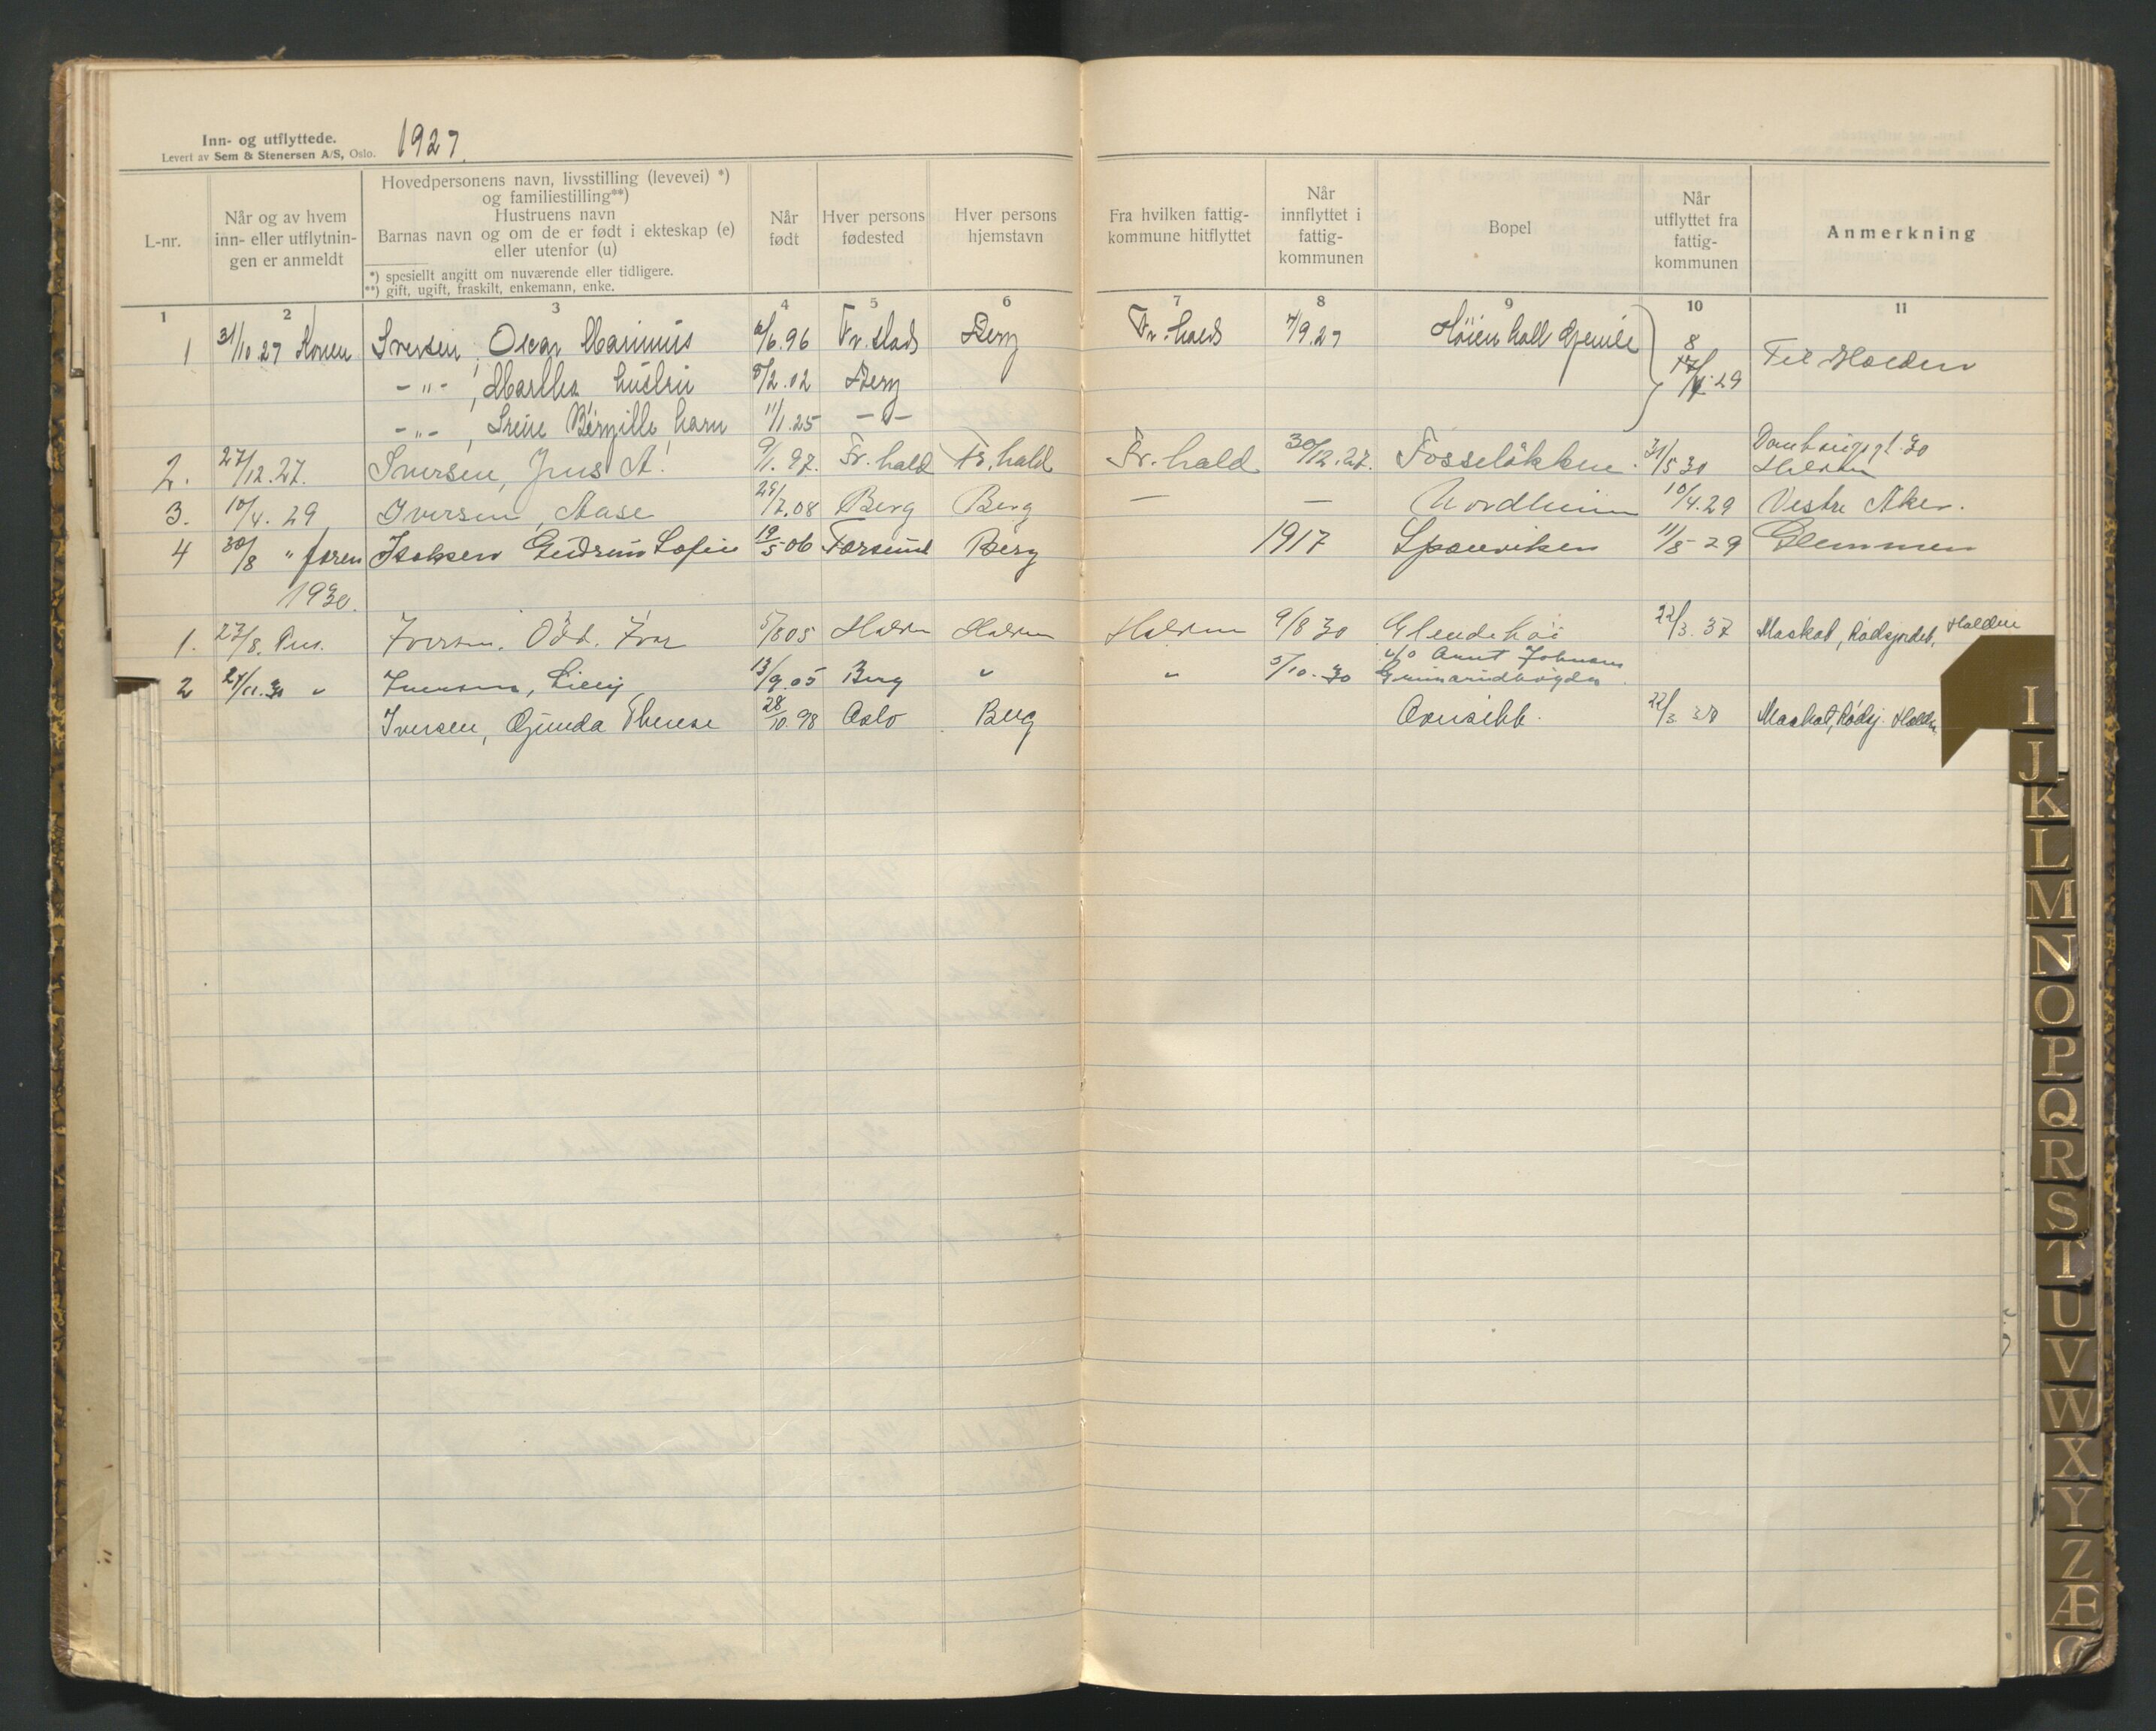 Inn- og utflyttede.
Levert av Sem & Stenersen A/S, Oslo.
1927.
L-nr.
Når og av hvem
inn- eller utflytnin-
gen er anmeldt
Hovedpersonens navn, livsstilling (levevei) *)
og familiestilling**)
Hustruens navn
Barnas navn og om de er født i ekteskap (e)
eller utenfor (u)
*) spesiellt angitt om nuværende eller tidligere.
**) gift, ugift, fraskilt, enkemann, enke.
Når
født
Hver persons
fødested
Hver persons
hjemstavn
Fra hvilken fattig-
kommune hitflyttet
Når
innflyttet i
fattig-
kommunen
Bopel
Når
utflyttet fra
fattig-
kommunen
Anmerkning
1 2 3 4 5 6 7 8 9 10 11
1 31/10.27 Konen Iversen, Oscar Marinius /6.96 Fr.stad Berg Fr.hald /9.27 Til Halden
-„- , Martha hustru 5/2.02 Berg 29
-„- , barn 11/1.25 -"-
2. 27/12.27. Iversen, Jens A. 9/1.97. Fr.hald Fr.hald Fr.hald 30/12.27. Fosseløkken 31/5 30 Halden
3. 10/4.29 Iversen, Aase 29/7.08 Berg Berg — — Nordheim 10/4.29 Vestre Aker.
4 30/8 " Isaksen Gudrun Sofie 19/5 06 Berg 1917 Sponviken 11/8-29 Glemmen
1930.
1. 27/8. Iversen, Odd. Ivar 5/8 05 Halden Halden Halden 9/8 30 22/3. 37 Maskat, Rødsjordet, Halden
2 24/11.30 " Iversen, Lilly 13/9.05 Berg " " 5/10.30 c/o Arnt Johansen
Iversen, Gunda Therese 28/10.98 Oslo Berg 22/3. Maskat, Rødsj. Halden
I
J
K
L
M
N
O
P
Q
R
S
T
U
V
W
X
Y
Z
Æ